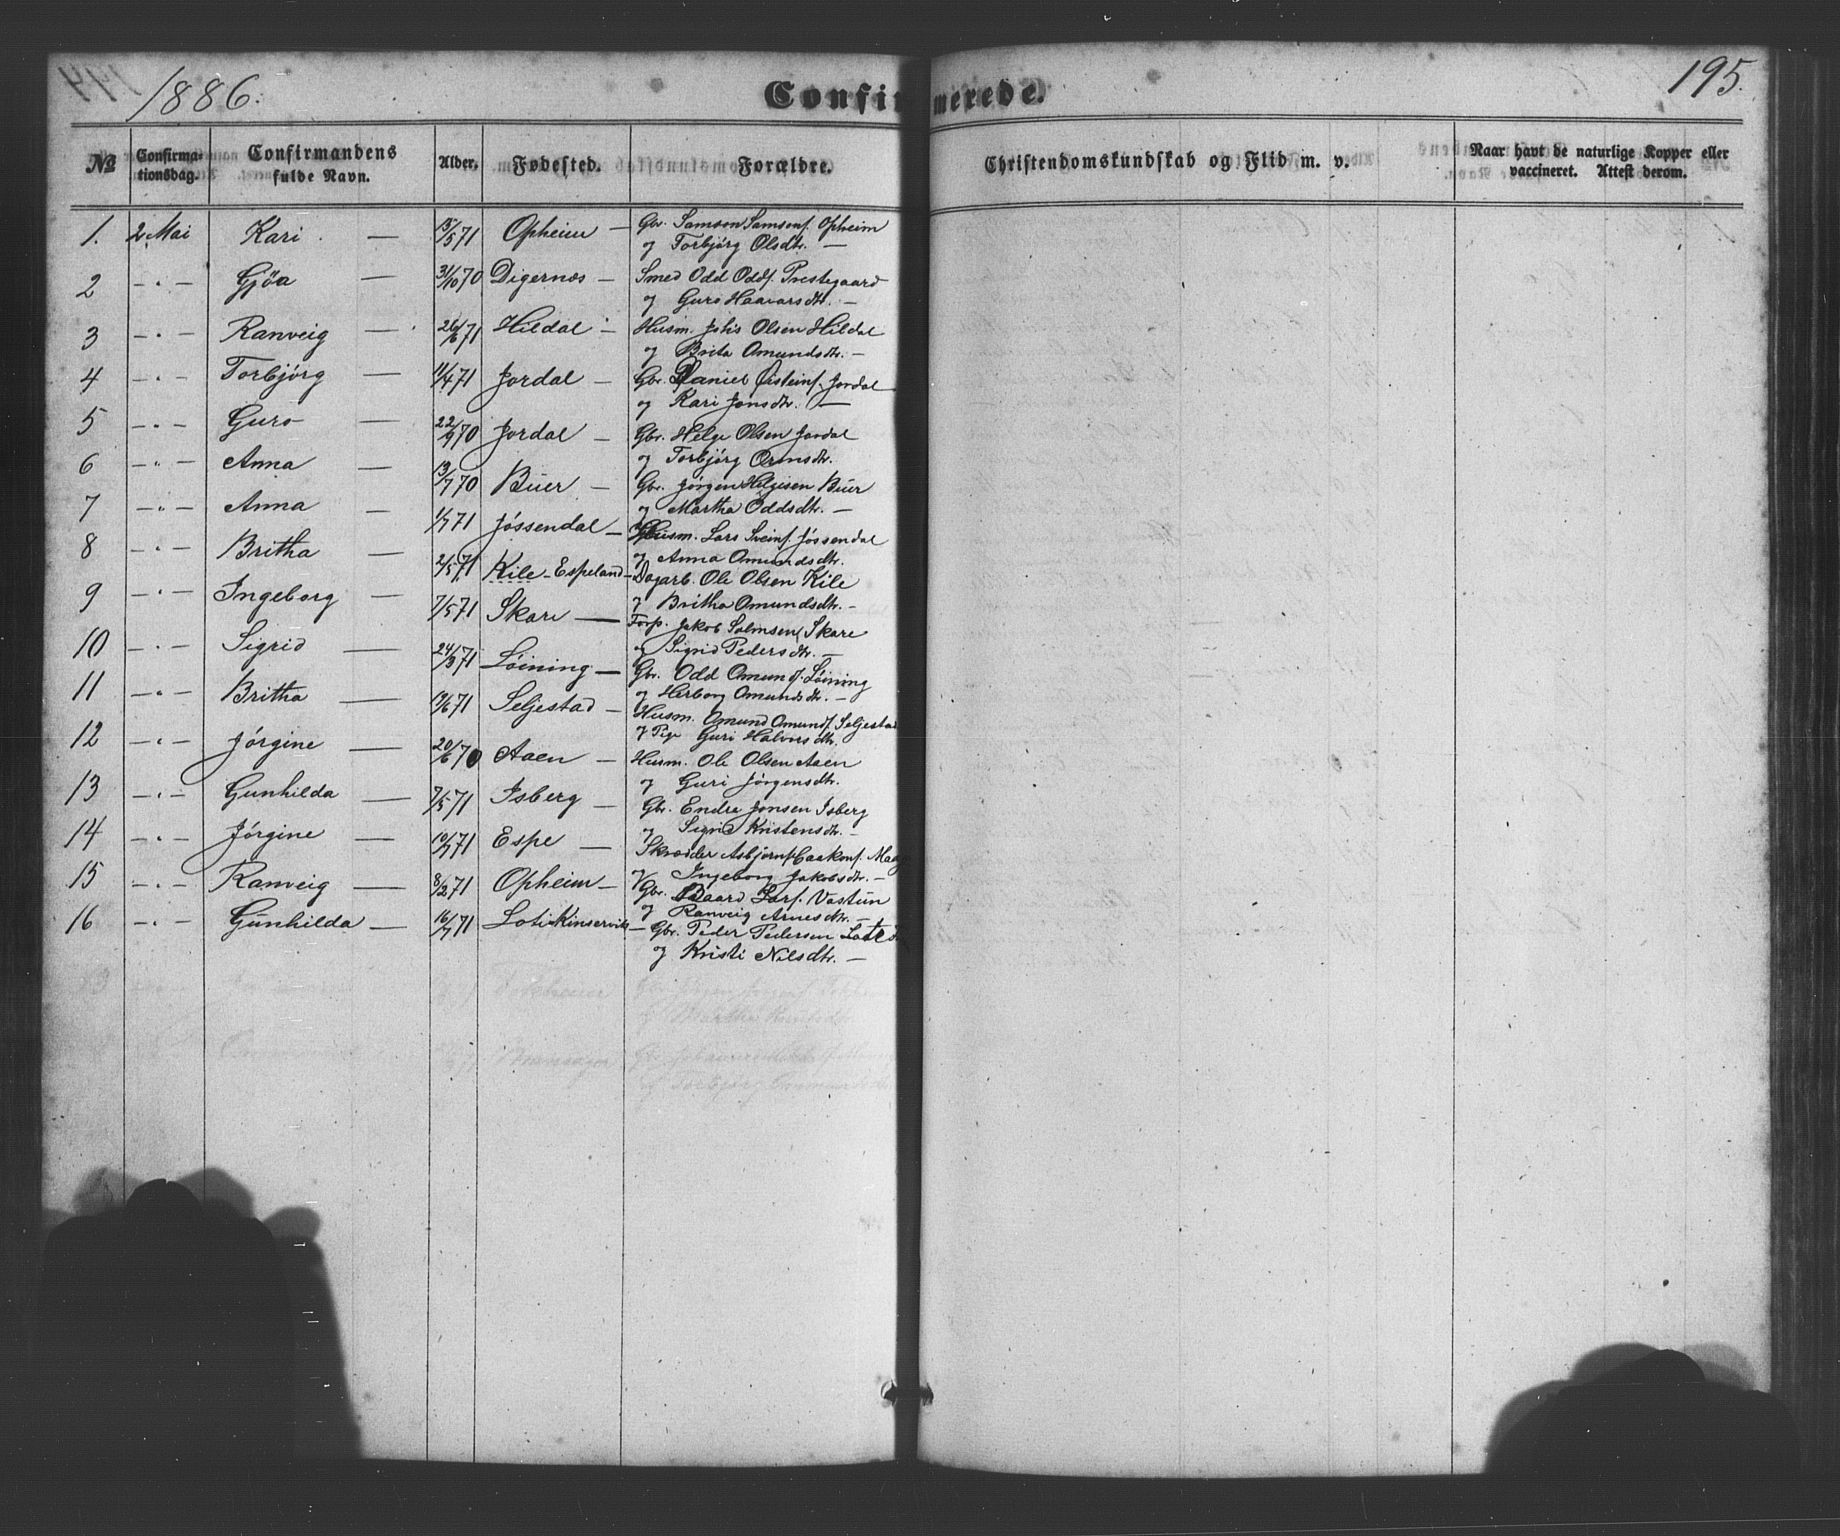 1886.
Confirmerede.
195.
No Confirmationsdag. Confirmandens fulde Navn. Alder. Fødested. Forældre. Christendomskundskab og Flid m. v. Naar havt de naturlige Kopper eller vaccineret. Attest derom.
1. 2 Mai Kari — 15/5 71 Opheim — Gbr. Samson Samsons. Opheim
og Torbjörg Olsdtr. —
2 — " — Gjöa — 31/10 70 Digernæs — Smed Odd Odds. Prestegaard
og Guro Haavarsdtr. —
3 — " — Ranveig — 26/6 71 Hildal — Husm. Johs Olsen Hildal
og Brita Omundsdtr. —
4 — " — Torbjörg — 11/4 71 Jordal — Gbr. Daniel Øisteins. Jordal
og Kari Jonsdtr. —
5 — " — Guro — 22/9 70 Jordal — Gbr. Helge Olsen Jordal
og Torbjörg Ormsdtr.
6 — " — Anna — 13/7 70 Buer — Gbr. Jörgen Helgesen Buer
og Martha Oddsdtr. —
7 — " — Anna — 1/7 71 Jössendal — Husm. Lars Sveins. Jössendal
og Anna Omundsdtr.
8 — " — Britha — 2/5 71 Kile-Espeland — Dagarb. Ole Olsen Kile
og Britha Omundsdtr. —
9 — " — Ingeborg — 7/5 71 Skare — Forp. Jakob Salmsen Skare
og Sigrid Pedersdtr. —
10 — " — Sigrid — 24/3 71 Löining — Gbr. Odd Omunds. Löining
og Herborg Omundsdtr. —
11 — " — Britha — 19/6 71 Seljestad — Husm. Omund Omunds. Seljestad
og Pige Guri Halvorsdtr.
12 — " — Jörgine — 20/6 70 Aaen — Husm. Ole Olsen Aaen
og Guri Jörgensdtr.
13 — " — Gunhilda — 7/5 71 Isberg — Gbr. Endre Jonsen Isberg
og Sigrid Kristensdtr. —
14 — " — Jörgine — 10/7 71 Espe — Skrædder Asbjörn
og Ingeborg Jakobsdtr. —
15 — " — Ranveig — 8/2 71 Opheim — Gbr. Baard Lars. Vastun
og Ranveig Arnesdtr. —
16 — " — Gunhilda — 16/7 71 Lote Kinservik — Gbr. Peder Pedersen Lote
og Kristi Nilsdtr. —